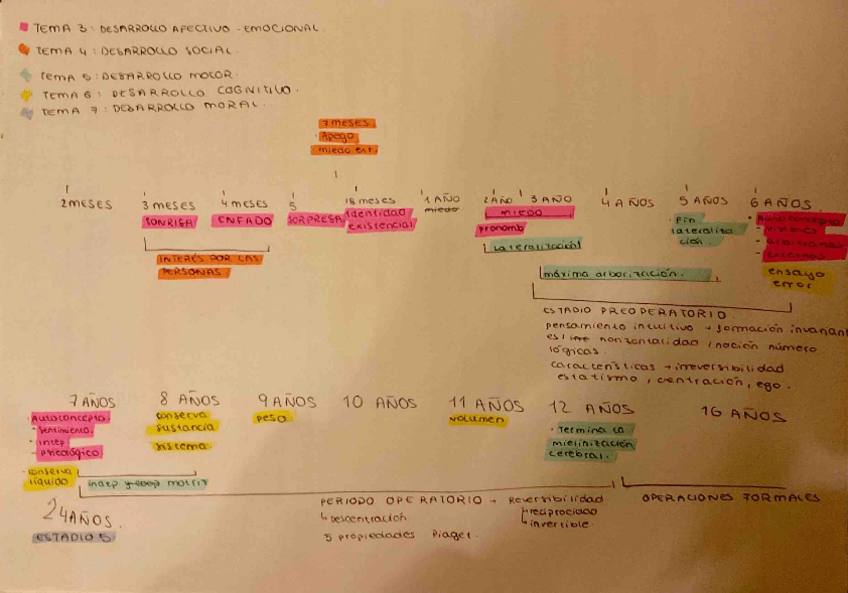 TEMA 3: DESARROLLO AFECTIVO-EMOCIONAL
TEMA 4: DESARROLLO SOCIAL.
TEMA 5: DESARROLLO MOTOR.
TEMA 6: DESARROLLO COGNITIVO.
TEMA 7: DESARROLLO MORAL.
7 MESES
Apego
miedo ext.
2 MESES
3 MESES
SONRISA
4 MESES
ENFADO
INTERÉS POR LAS
PERSONAS
5
SORPRESA
18 MESES
identidad
existencial
1 AÑO
miedo
2 AÑO
3 AÑO
miedo
pronomb
LATERALIZACIÓN
4 AÑOS
máxima arborización.
5 AÑOS
Fin
lateraliza
ción.
6 AÑOS.
Autoconcepto
externas
ensayo
error
ESTADIO PREOPERATORIO.
pensamiento intuitivo → formación invariant
horizontalidad / noción número
lógicas.
características → irreversibilidad
estatismo, centración, ego.
7 AÑOS
Autoconcepto.
sentimiento.
intep
psicológico
conserva
líquido
8 AÑOS
conserva
sustancia
sistema.
indep y coop motriz
9 AÑOS
PESO
10 AÑOS
11 AÑOS
VOLUMEN
12 AÑOS
Termina la
mielinización
cerebral.
16 AÑOS
PERIODO OPERATORIO → Reversibilidad
descentración
reciprocidad
invertible.
5 propiedades Piaget.
OPERACIONES FORMALES
24 AÑOS.
ESTADIO 5